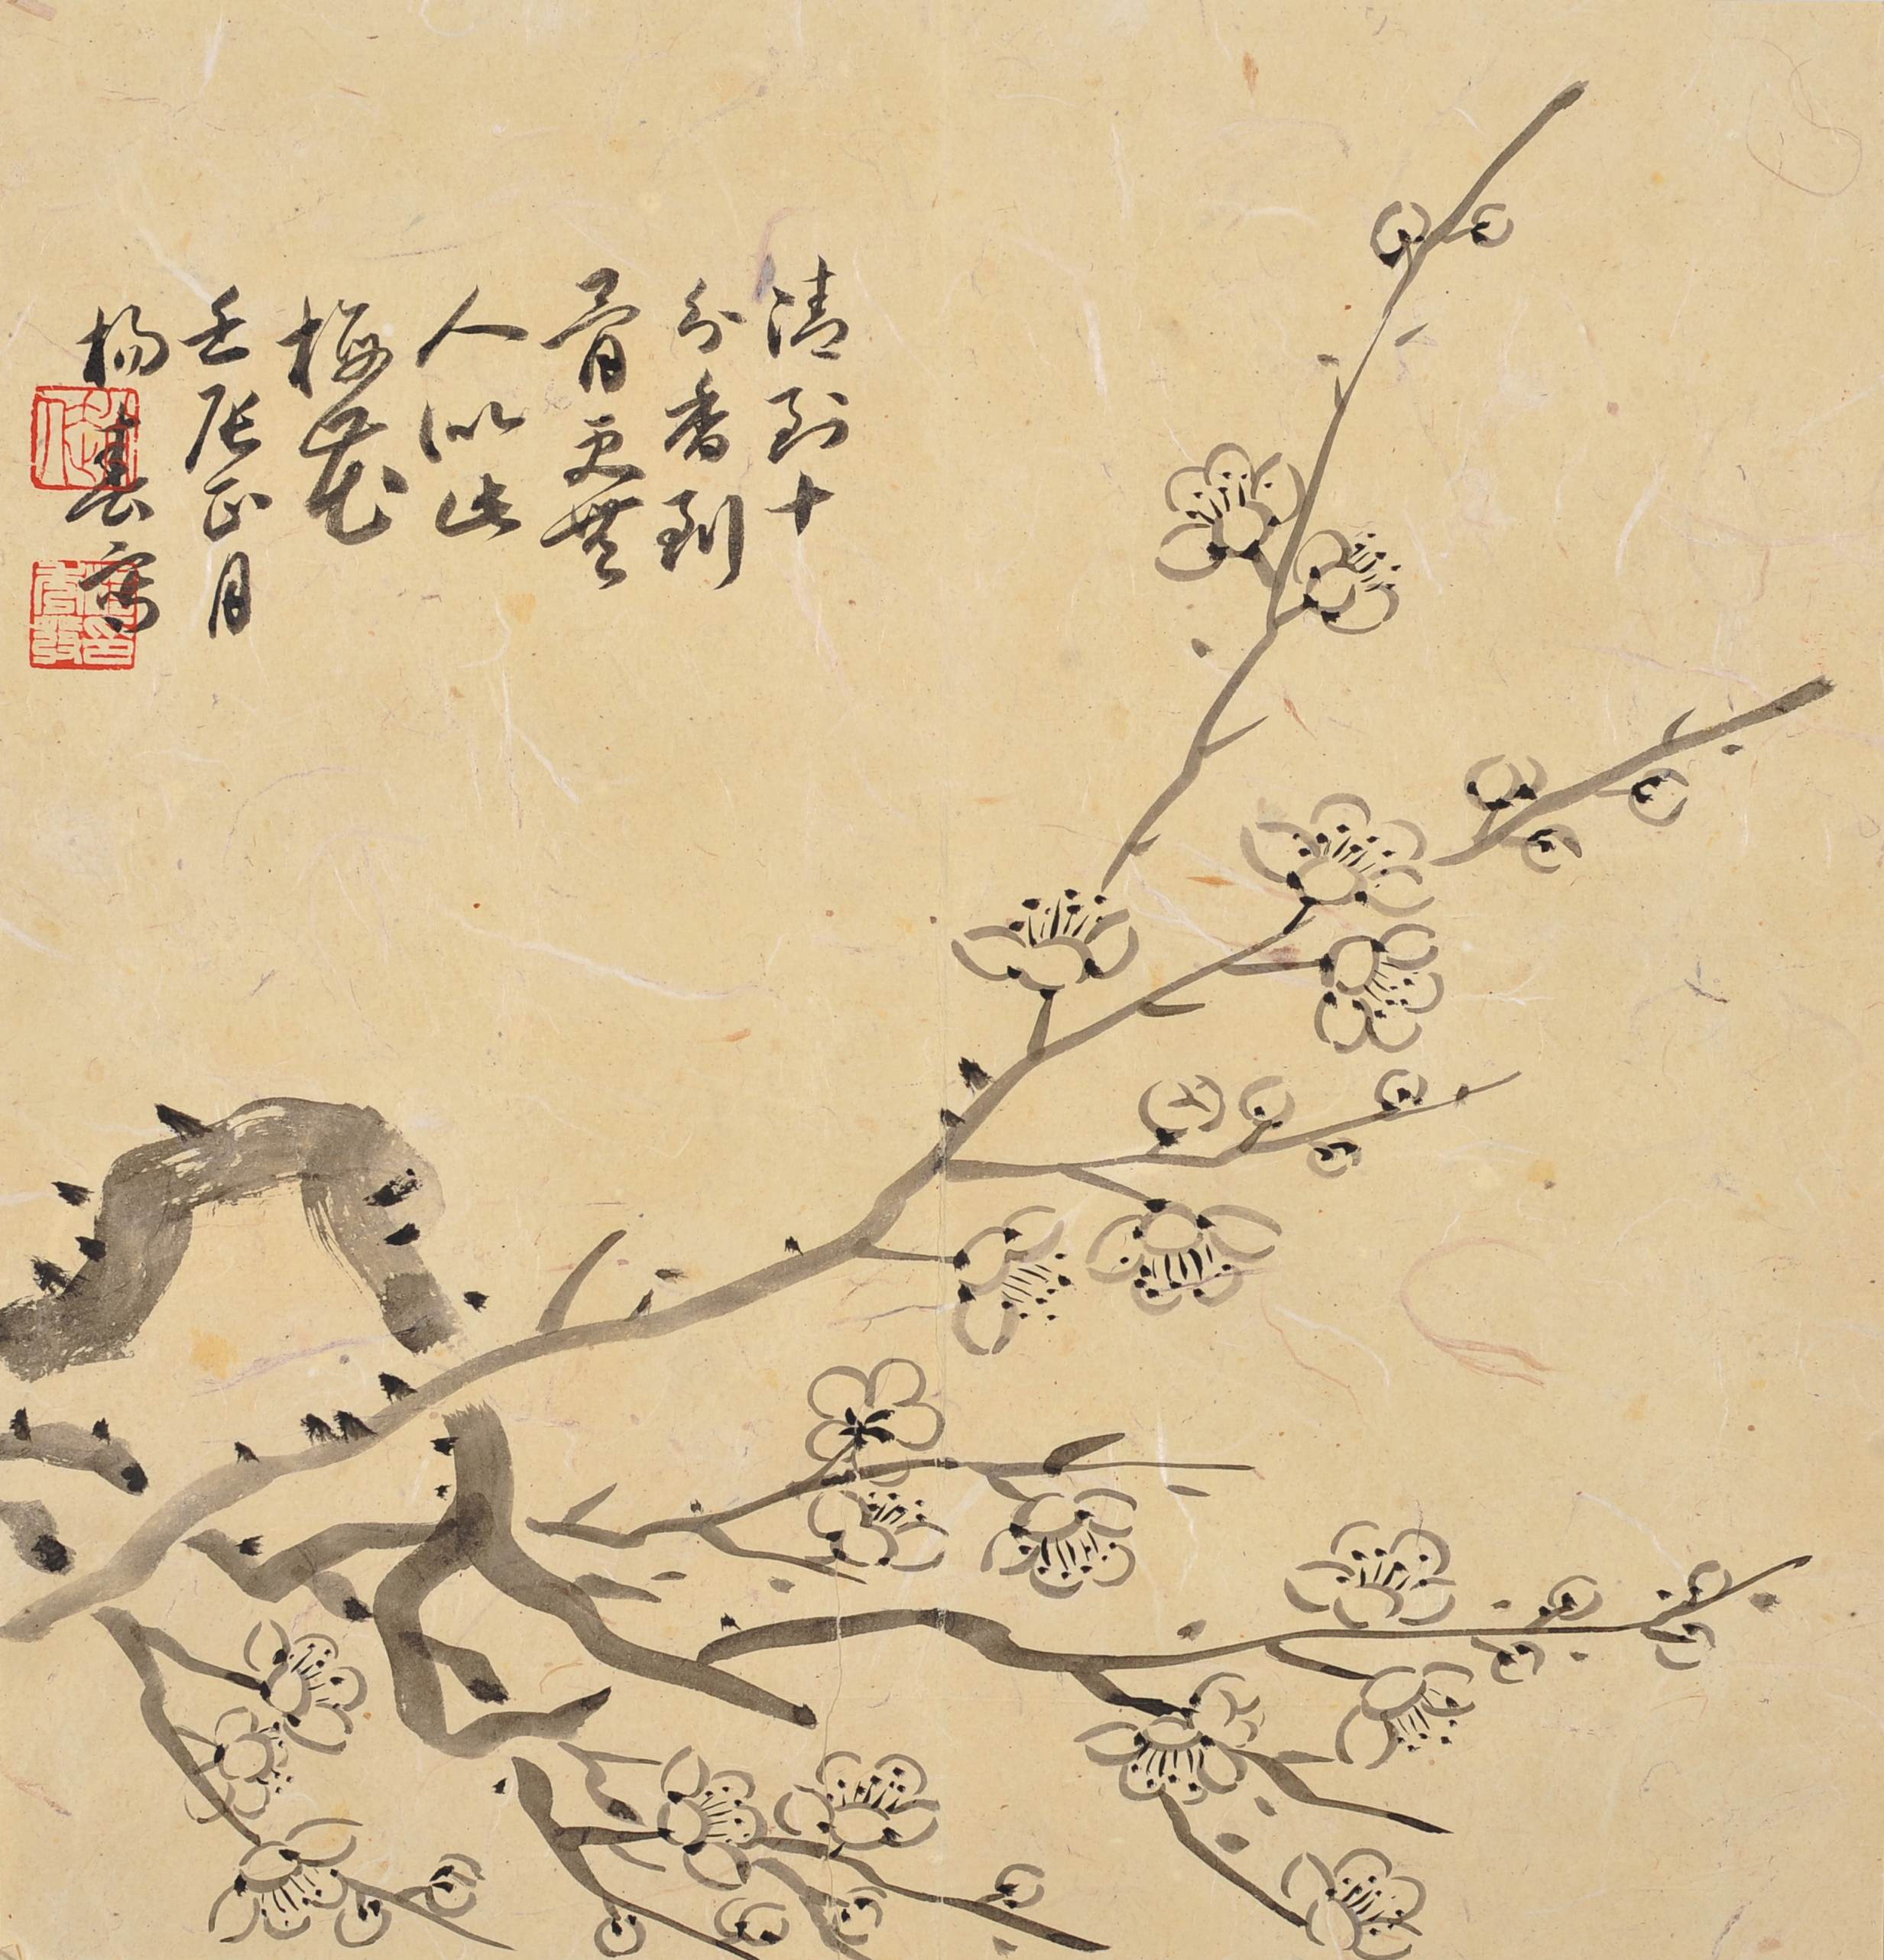 清到十
分香到
骨更無
人似此
梅花
壬辰正月
楊春寫